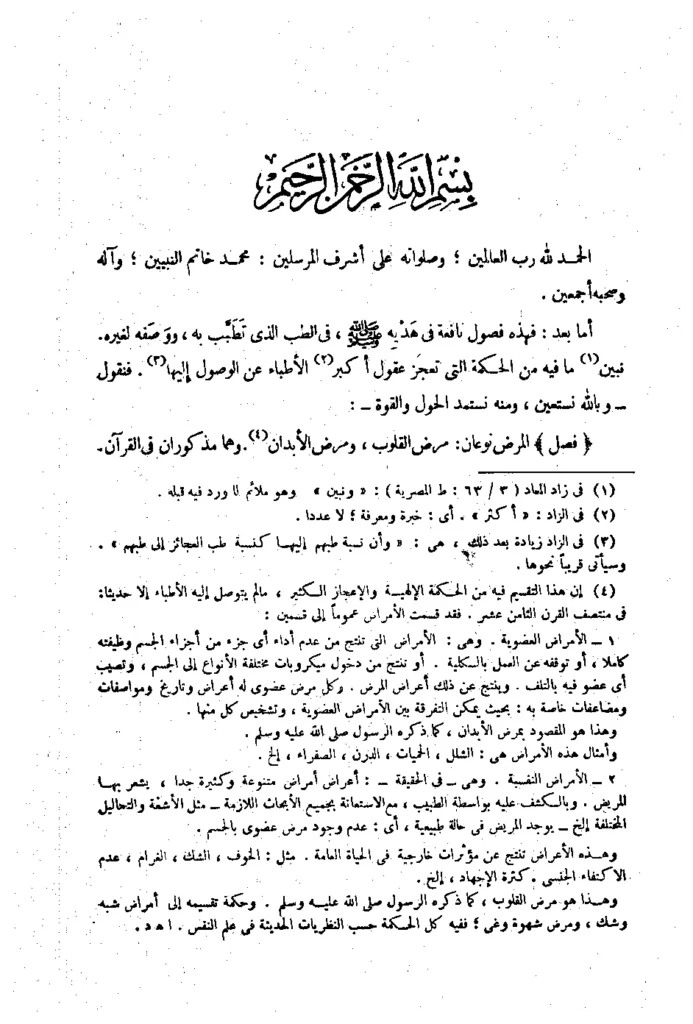 بسم الله الرحمن الرحيم
الحمد لله رب العالمين ؛ وصلواته على أشرف المرسلين : محمد خاتم النبيين ؛ وآله
وصحبه أجمعين .
أما بعد : فهذه فصول نافعة فى هَدْيِه ﷺ ، فى الطب الذى تَطَبَّب به ، ووصَفه لغيره.
نبين(١) ما فيه من الحكمة التى تعجَز عقول أكبر(٢) الأطباء عن الوصول إليها(٣) . فنقول
ـ وبالله نستعين ، ومنه نستمد الحول والقوة ـ :
﴿ فصل ﴾ المرض نوعان: مرض القلوب ، ومرض الأبدان(٤). وهما مذكوران فى القرآن .
(١) فى زاد المعاد ( ٣ / ٦٣ : ط المصرية ) : « ونبين » وهو ملائم لما ورد فيه قبله .
(٢) فى الزاد : « أكثر » . أى : خبرة ومعرفة ؛ لا عددا .
(٣) فى الزاد زيادة بعد ذلك ، هى : « وأن نسبة طبهم إليها كنسبة طب العجائز إلى طبهم » .
وسيأتى قريباً نحوها .
(٤) إن هذا التقسيم فيه من الحكمة الإلهية والإعجاز الكثير ، مالم يتوصل إليه الأطباء إلا حديثا:
فى منتصف القرن الثامن عشر . فقد قسمت الأمراض عموماً إلى قسمين :
١ ـ الأمراض العضوية . وهى : الأمراض التى تنتج من عدم أداء أى جزء من أجزاء الجسم وظيفته
كاملا ، أو توقفه عن العمل بالسكلية . أو تنتج من دخول ميكروبات مختلفة الأنواع إلى الجسم ، وتصيب
أى عضو فيه بالتلف . وينتج عن ذلك أعراض المرض . وكل مرض عضوى له أعراض وتاريخ ومواصفات
ومضاعفات خاصة به : بحيث يمكن التفرقة بين الأمراض العضوية ، وتشخيص كل منها .
وهذا هو المقصود بمرض الأبدان ، كما ذكره الرسول صلى الله عليه وسلم .
وأمثال هذه الأمراض هى : الشلل ، الحميات ، الدرن ، الصفراء ، إلخ .
٢ ـ الأمراض النفسية . وهى ـ فى الحقيقة ـ : أعراض أمراض متنوعة وكثيرة جدا ، يشعر بها
المريض . وبالكشف عليه بواسطة الطبيب ، مع الاستعانة بجميع الأبحاث اللازمة ـ مثل الأشعة والتحاليل
المختلفة إلخ ـ يوجد المريض فى حالة طبيعية ، أى : عدم وجود مرض عضوى بالجسم .
وهذه الأعراض تنتج عن مؤثرات خارجية فى الحياة العامة . مثل : الخوف ، الشك ، الغرام ، عدم
الاكتفاء الجنسى . كثرة الإجهاد ، إلخ .
وهذا هو مرض القلوب ، كما ذكره الرسول صلى الله عليه وسلم . وحكمة تقسيمه إلى أمراض شبه
وشك ، ومرض شهوة وغى ؛ ففيه كل الحكمة حسب النظريات الحديثة فى علم النفس . اهـ د .